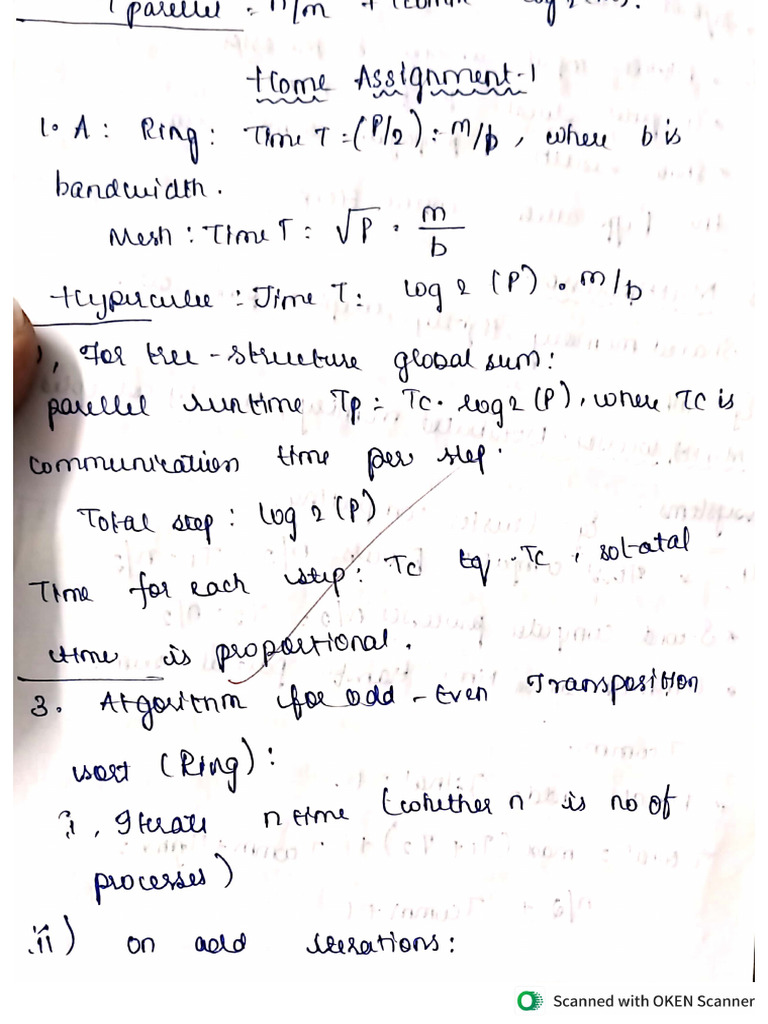 parellel = n/m +
Home Assignment-1
1. A: Ring: Time T = (P/2) . m/b, where b is
bandwidth.
Mesh: Time T: √P . m/b
Hypercube: Time T: log 2 (P) . m/b
), For tree-structure global sum:
parellel runtime Tp = Tc. log2 (P), where Tc is
communication time per step.
Total step: log 2 (P)
Time for each step: Tc Tc, so
time is proportional.
3. Algorithm for odd-Even Transposition
sort (Ring):
i, Iterate n time (whether n is no of
processes)
ii) on odd iterations:
Scanned with OKEN Scanner